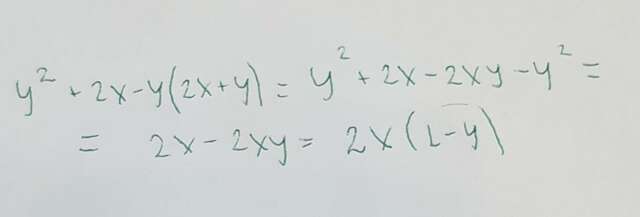 y² + 2x - y(2x+y) = y² + 2x - 2xy - y² =
= 2x - 2xy = 2x(1-y)